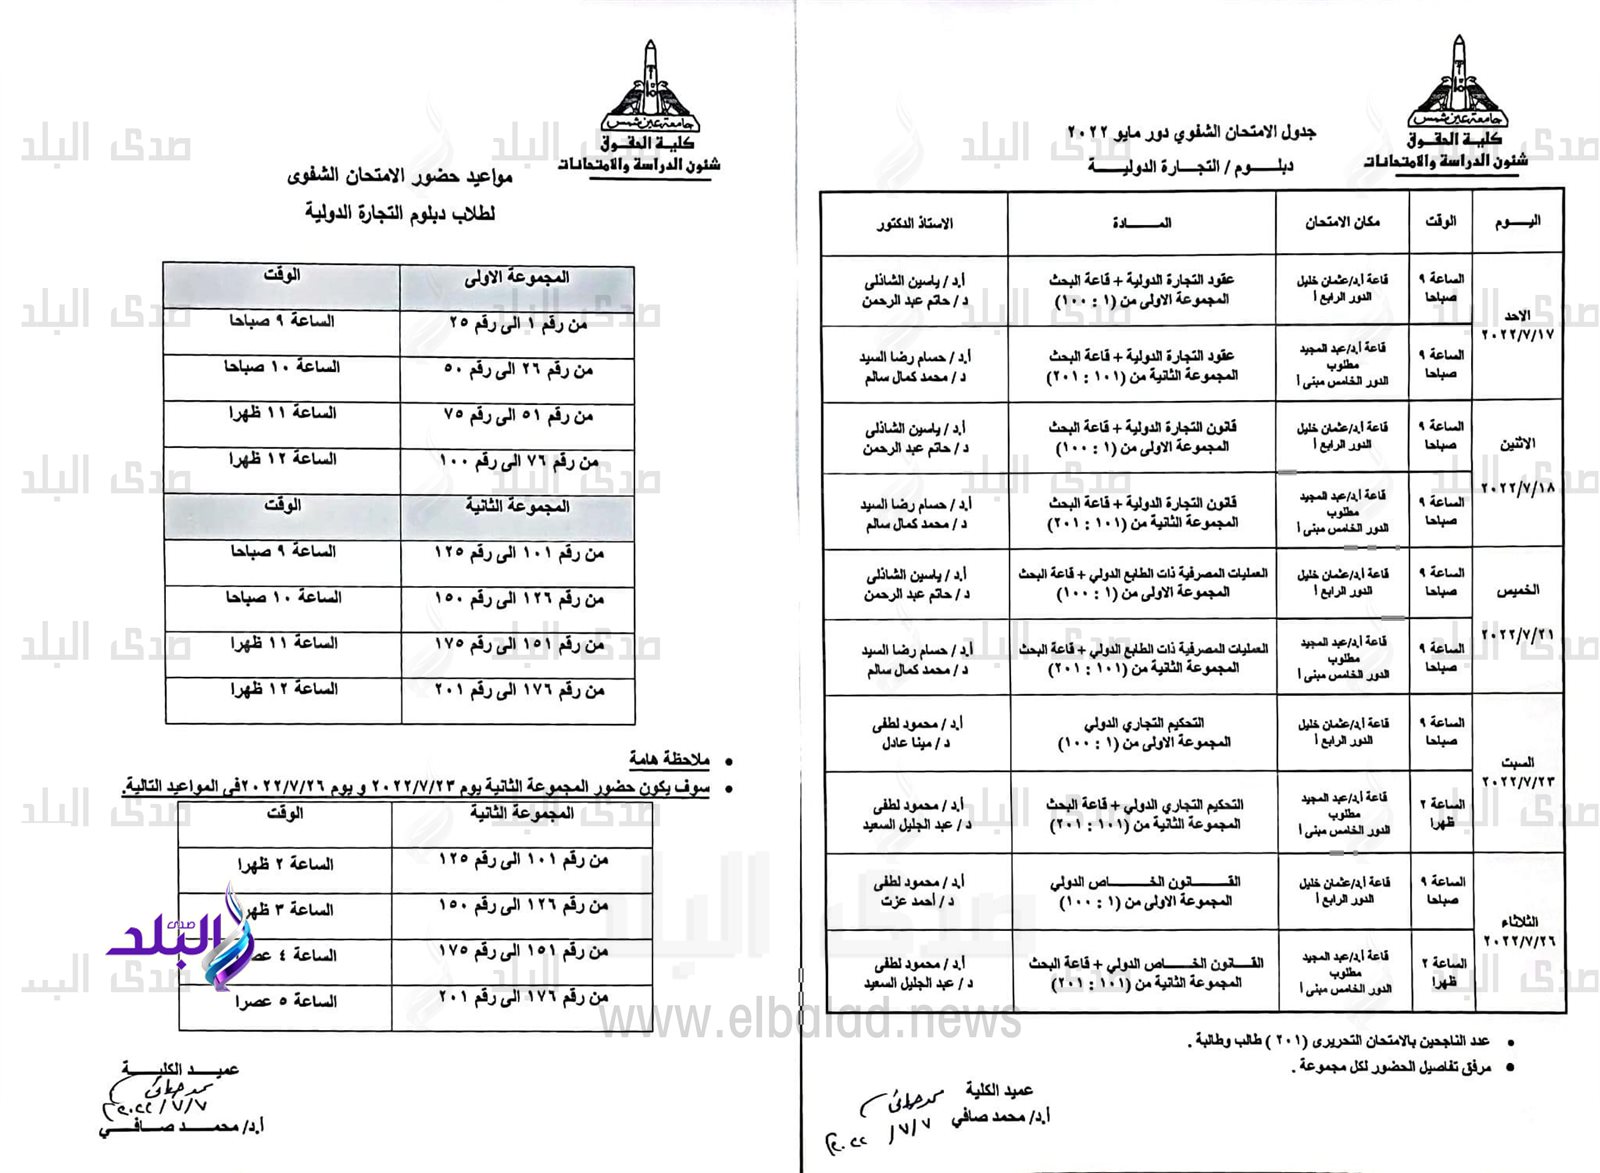 جامعة عين شمس
كلية الحقوق
شئون الدراسة والامتحانات
جدول الامتحان الشفوي دور مايو ٢٠٢٢
دبلـــوم / التجـارة الدوليـــة
اليـــوم
الوقت
مكان الامتحان
المـــادة
الاستاذ الدكتور
الاحد
٢٠٢٢/٧/١٧
الساعة ٩
صباحا
قاعة أ.د/عثمان خليل
الدور الرابع أ
عقود التجارة الدولية + قاعة البحث
المجموعة الاولى من (١ : ١٠٠)
أ.د/ ياسين الشاذلى
د/ حاتم عبد الرحمن
الساعة ٩
صباحا
قاعة أ.د/عبد المجيد
مطلوب
الدور الخامس مبنى أ
عقود التجارة الدولية + قاعة البحث
المجموعة الثانية من (١٠١ : ٢٠١)
أ.د/ حسام رضا السيد
د/ محمد كمال سالم
الاثنين
٢٠٢٢/٧/١٨
الساعة ٩
صباحا
قاعة أ.د/عثمان خليل
الدور الرابع أ
قانون التجارة الدولية + قاعة البحث
المجموعة الاولى من (١ : ١٠٠)
أ.د/ ياسين الشاذلى
د/ حاتم عبد الرحمن
الساعة ٩
صباحا
قاعة أ.د/عبد المجيد
مطلوب
الدور الخامس مبنى أ
قانون التجارة الدولية + قاعة البحث
المجموعة الثانية من (١٠١ : ٢٠١)
أ.د/ حسام رضا السيد
د/ محمد كمال سالم
الخميس
٢٠٢٢/٧/٢١
الساعة ٩
صباحا
قاعة أ.د/عثمان خليل
الدور الرابع أ
العمليات المصرفية ذات الطابع الدولي + قاعة البحث
المجموعة الاولى من (١ : ١٠٠)
أ.د/ ياسين الشاذلى
د/ حاتم عبد الرحمن
الساعة ٩
صباحا
قاعة أ.د/عبد المجيد
مطلوب
الدور الخامس مبنى أ
العمليات المصرفية ذات الطابع الدولي + قاعة البحث
المجموعة الثانية من (١٠١ : ٢٠١)
أ.د/ حسام رضا السيد
د/ محمد كمال سالم
السبت
٢٠٢٢/٧/٢٣
الساعة ٩
صباحا
قاعة أ.د/عثمان خليل
الدور الرابع أ
التحكيم التجاري الدولي
المجموعة الاولى من (١ : ١٠٠)
أ.د/ محمود لطفى
د/ مينا عادل
الساعة ٢
ظهرا
قاعة أ.د/عبد المجيد
مطلوب
الدور الخامس مبنى أ
التحكيم التجاري الدولي + قاعة البحث
المجموعة الثانية من (١٠١ : ٢٠١)
أ.د/ محمود لطفى
د/ عبد الجليل السعيد
الثلاثاء
٢٠٢٢/٧/٢٦
الساعة ٩
صباحا
قاعة أ.د/عثمان خليل
الدور الرابع أ
القــانون الخــاص الدولي
المجموعة الاولى من (١ : ١٠٠)
أ.د/ محمود لطفى
د/ أحمد عزت
الساعة ٢
ظهرا
قاعة أ.د/عبد المجيد
مطلوب
الدور الخامس مبنى أ
القــانون الخــاص الدولي + قاعة البحث
المجموعة الثانية من (١٠١ : ٢٠١)
أ.د/ محمود لطفى
د/ عبد الجليل السعيد
• عدد الناجحين بالامتحان التحريرى (٢٠١) طالب وطالبة .
• مرفق تفاصيل الحضور لكل مجموعة .
عميد الكلية
أ.د/ محمد صافي
٢٠٢٢/٧/٧
جامعة عين شمس
كلية الحقوق
شئون الدراسة والامتحانات
مواعيد حضور الامتحان الشفوى
لطلاب دبلوم التجارة الدولية
المجموعة الاولى
الوقت
من رقم ١ الى رقم ٢٥
الساعة ٩ صباحا
من رقم ٢٦ الى رقم ٥٠
الساعة ١٠ صباحا
من رقم ٥١ الى رقم ٧٥
الساعة ١١ ظهرا
من رقم ٧٦ الى رقم ١٠٠
الساعة ١٢ ظهرا
المجموعة الثانية
الوقت
من رقم ١٠١ الى رقم ١٢٥
الساعة ٩ صباحا
من رقم ١٢٦ الى رقم ١٥٠
الساعة ١٠ صباحا
من رقم ١٥١ الى رقم ١٧٥
الساعة ١١ ظهرا
من رقم ١٧٦ الى رقم ٢٠١
الساعة ١٢ ظهرا
• ملاحظة هامة
• سوف يكون حضور المجموعة الثانية يوم ٢٠٢٢/٧/٢٣ و يوم ٢٠٢٢/٧/٢٦فى المواعيد التالية.
المجموعة الثانية
الوقت
من رقم ١٠١ الى رقم ١٢٥
الساعة ٢ ظهرا
من رقم ١٢٦ الى رقم ١٥٠
الساعة ٣ ظهر
من رقم ١٥١ الى رقم ١٧٥
الساعة ٤ عص
من رقم ١٧٦ الى رقم ٢٠١
الساعة ٥ عصرا
عميــد الكليـــة
٢٠٢٢/٧/٧
أ.د/ محمــد صــافــي
صدى البلد
www.elbalad.news